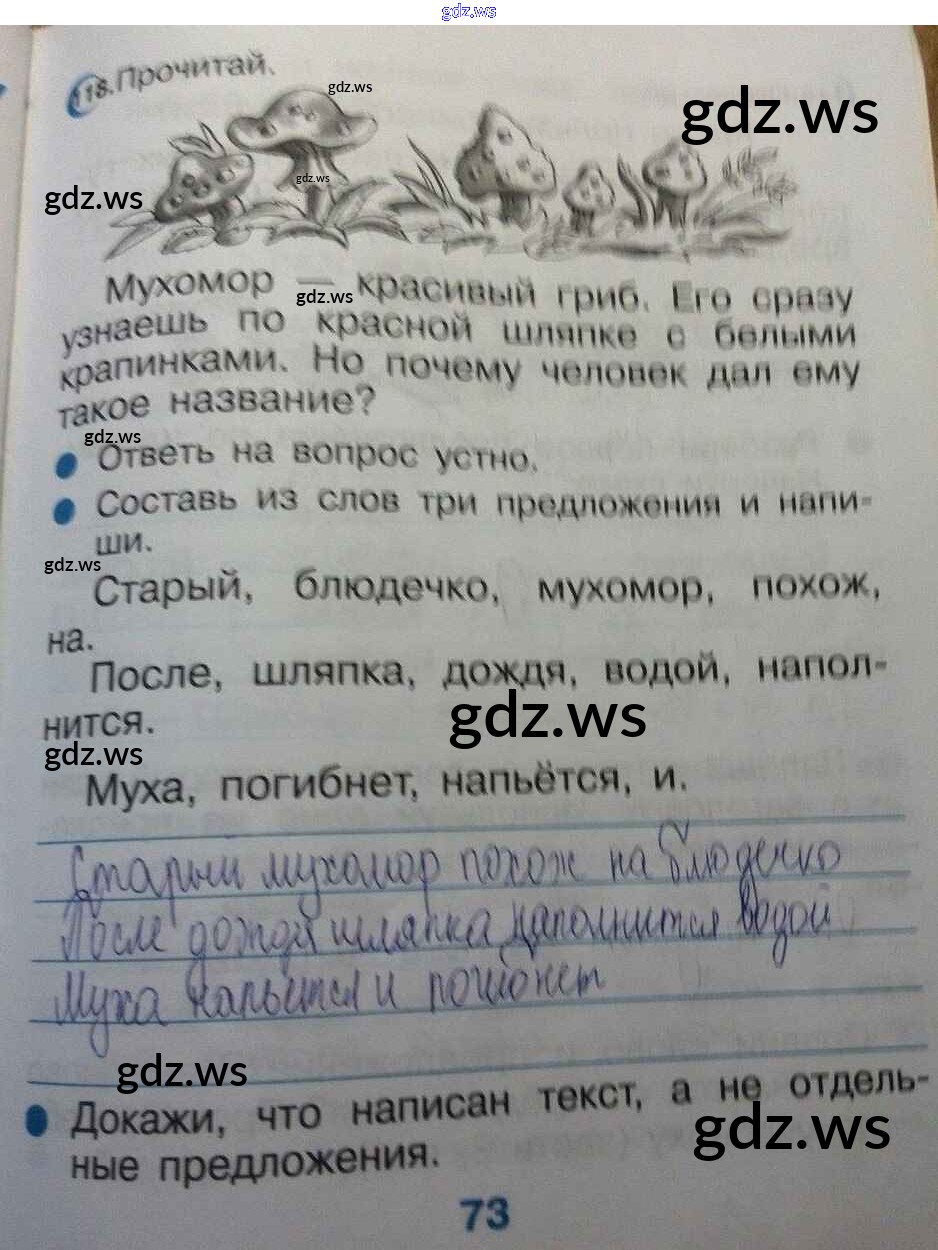 gdz.ws
118. Прочитай.
gdz.ws
gdz.ws
gdz.ws
gdz.ws
Мухомор — красивый гриб. Его сразу
gdz.ws
узнаешь по красной шляпке с белыми
крапинками. Но почему человек дал ему
такое название?
gdz.ws
Ответь на вопрос устно.
Составь из слов три предложения и напи-
ши.
gdz.ws
Старый, блюдечко, мухомор, похож,
на.
После, шляпка, дождя, водой, напол-
нится.
gdz.ws
gdz.ws
Муха, погибнет, напьётся, и.
Старый мухомор похож на блюдечко
После дождя шляпка наполнится водой
Муха напьется и погибнет
gdz.ws
Докажи, что написан текст, а не отдель-
ные предложения.
gdz.ws
73